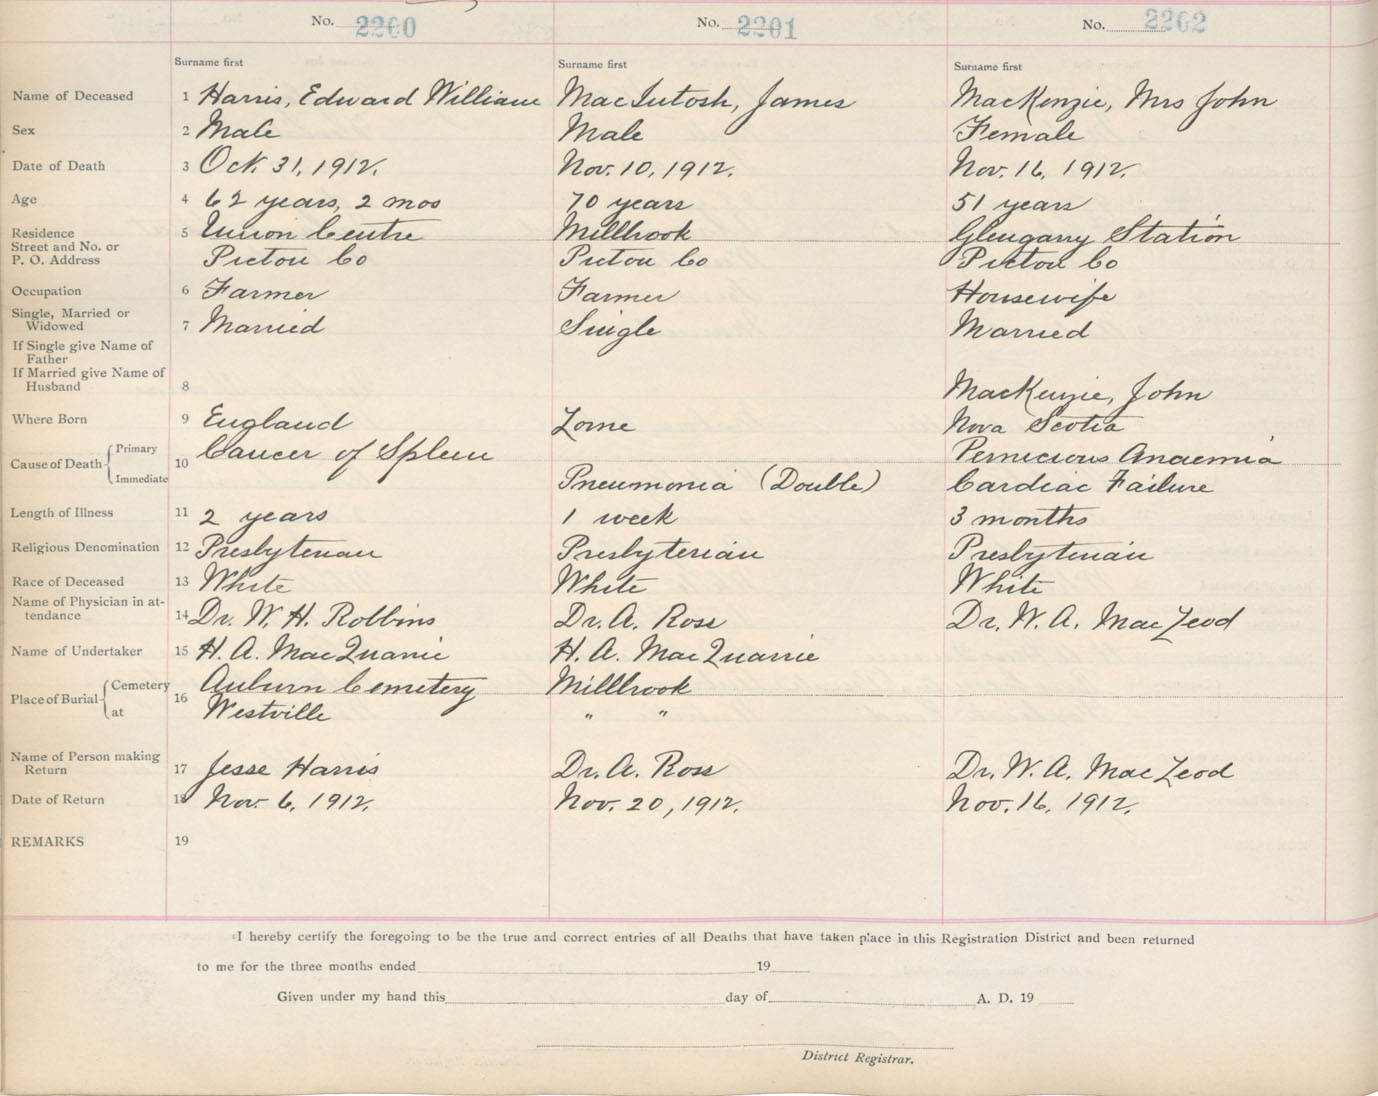 No. 2200 No. 2201 No. 2202
Surname first Surname first Surname first
Name of Deceased 1 Harris, Edward William MacIntosh, James MacKenzie, Mrs John
Sex 2 Male Male Female
Date of Death 3 Oct. 31, 1912. Nov. 10, 1912. Nov. 16, 1912.
Age 4 62 years, 2 mos 70 years 51 years
Residence 5 Union Centre Millbrook Glengarry Station
Street and No. or
P. O. Address Pictou Co Pictou Co Pictou Co
Occupation 6 Farmer Farmer Housewife
Single, Married or
Widowed 7 Married Single Married
If Single give Name of
Father
If Married give Name of
Husband 8 MacKenzie, John
Where Born 9 England Lorne Nova Scotia
Cause of Death Primary 10 Cancer of Spleen Pernicious Anaemia
Immediate Pneumonia (Double) Cardiac Failure
Length of Illness 11 2 years 1 week 3 months
Religious Denomination 12 Presbyterian Presbyterian Presbyterian
Race of Deceased 13 White White White
Name of Physician in at-
tendance 14 Dr. W. H. Robbins Dr. A. Ross Dr. W. A. MacLeod
Name of Undertaker 15 H. A. MacQuarrie H. A. MacQuarrie
Place of Burial Cemetery 16 Auburn Cemetery Millbrook
at Westville " "
Name of Person making
Return 17 Jesse Harris Dr. A. Ross Dr. W. A. MacLeod
Date of Return 18 Nov. 6, 1912. Nov. 20, 1912. Nov. 16, 1912.
REMARKS 19
I hereby certify the foregoing to be the true and correct entries of all Deaths that have taken place in this Registration District and been returned
to me for the three months ended 19
Given under my hand this day of A. D. 19
District Registrar.